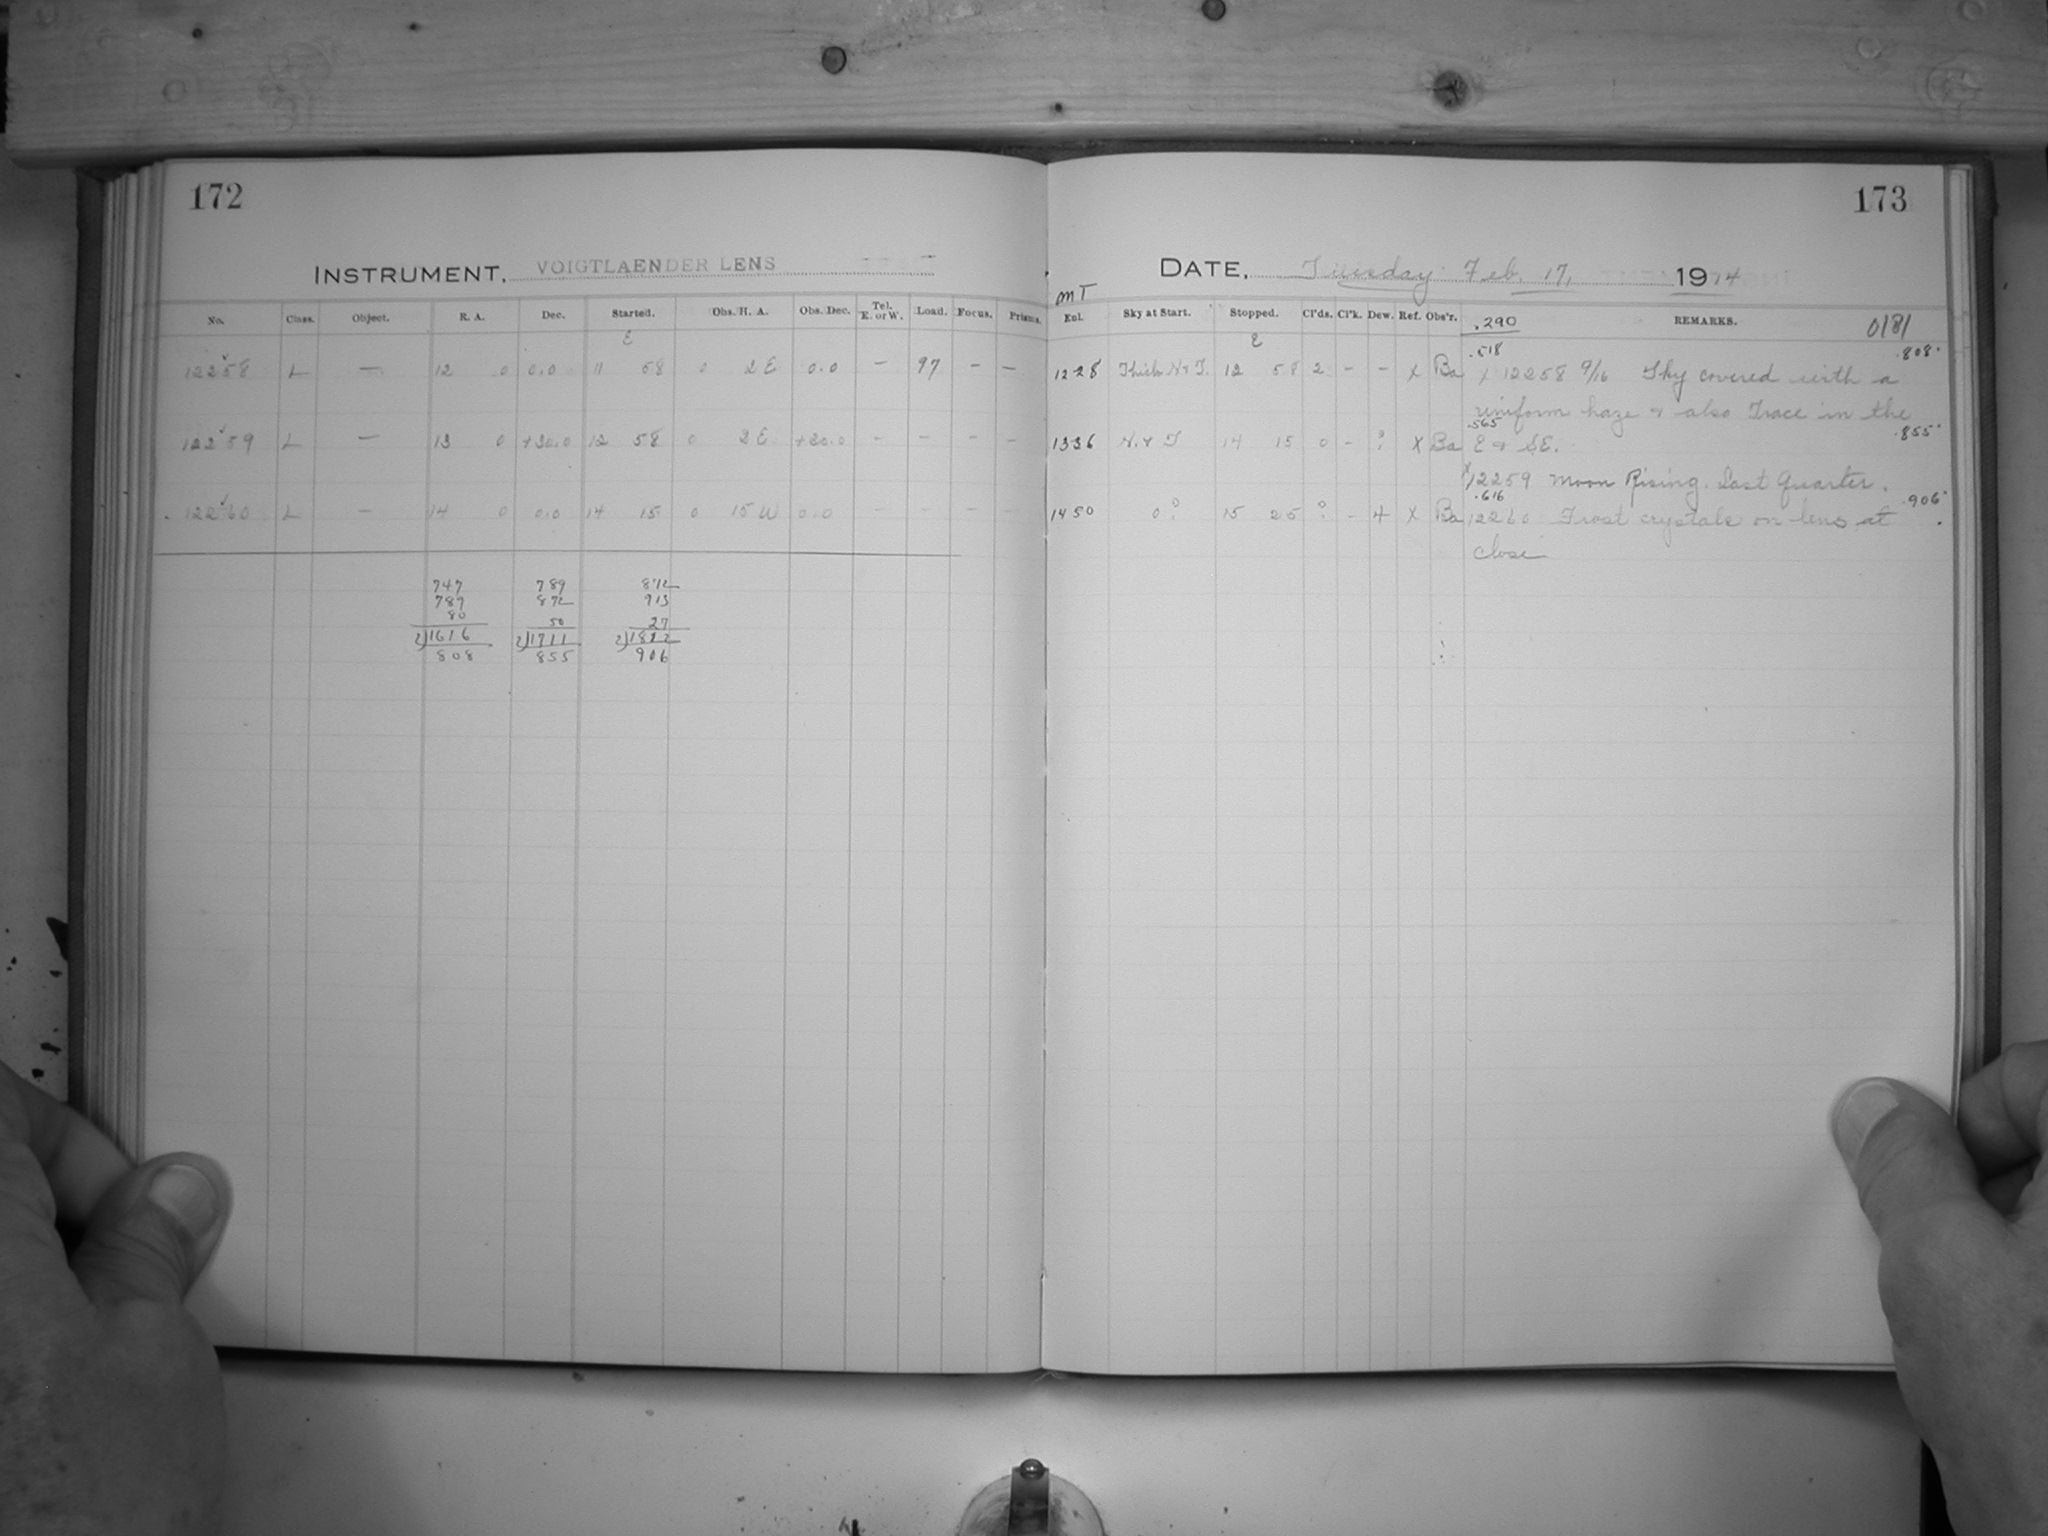 172
173
INSTRUMENT, VOIGTLAENDER LENS
DATE, Tuesday Feb. 17, 1914
MT
No. Class. Object. R. A. Dec. Started. Obs. H. A. Obs. Dec. Tel. E. or W. Load. Focus. Prisms.
Exl. Sky at Start. Stopped. Cl'ds. Cl'k. Dew. Ref. Obs'r. .290 REMARKS. 0181
E
E
.518 .808
12258 L — 12 0 0.0 11 58 0 2 E 0.0 — 97 — —
12 28 Thick N & T. 12 58 2 — — x Ba x 12258 9/16 Sky covered with a
uniform haze & also Trace in the
.565 .855
12259 L — 13 0 +30.0 12 58 0 2 E +30.0 — — — —
13 36 N. & T 14 15 0 — ? x Ba E & S.E.
x 12259 Moon Rising. Last Quarter.
.616 .906
12260 L — 14 0 0.0 14 15 0 15 W 0.0 — — — —
14 50 0? 15 25 ? — 4 x Ba 12260 Frost crystals on lens at
close
747 789 872
789 872 913
80 50 27
2)1616 2)1711 2)1812
808 855 906